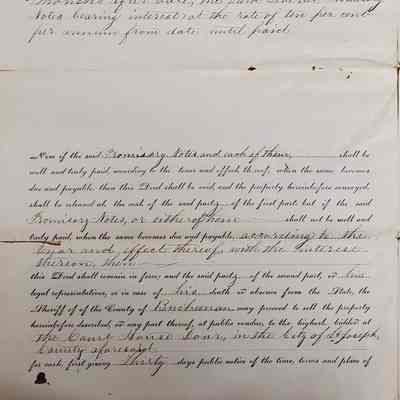 months after date, the said
Notes bearing interest at the rate of ten per cent
per annum from date until paid
Now if the said Promissory Notes and each of them, shall be
well and truly paid, according to the tenor and effect thereof, when the same becomes
due and payable, then this Deed shall be void, and the property hereinbefore conveyed,
shall be released at the cost of the said party of the first part; but if the said
Promisory Notes, or either of them shall not be well and
truly paid, when the same becomes due and payable, according to the
tenor and effect thereof, with the interest
thereon, then
this Deed shall remain in force; and the said party of the second part, or his
legal representatives, or in case of his death or absence from the State, the
Sheriff of of the County of Buchanan may proceed to sell the property
hereinbefore described, or any part thereof, at public vendue, to the highest bidder, at
the Court House door, in the City of St Joseph,
County aforesaid
for cash, first giving Thirty days public notice of the time, terms and place of